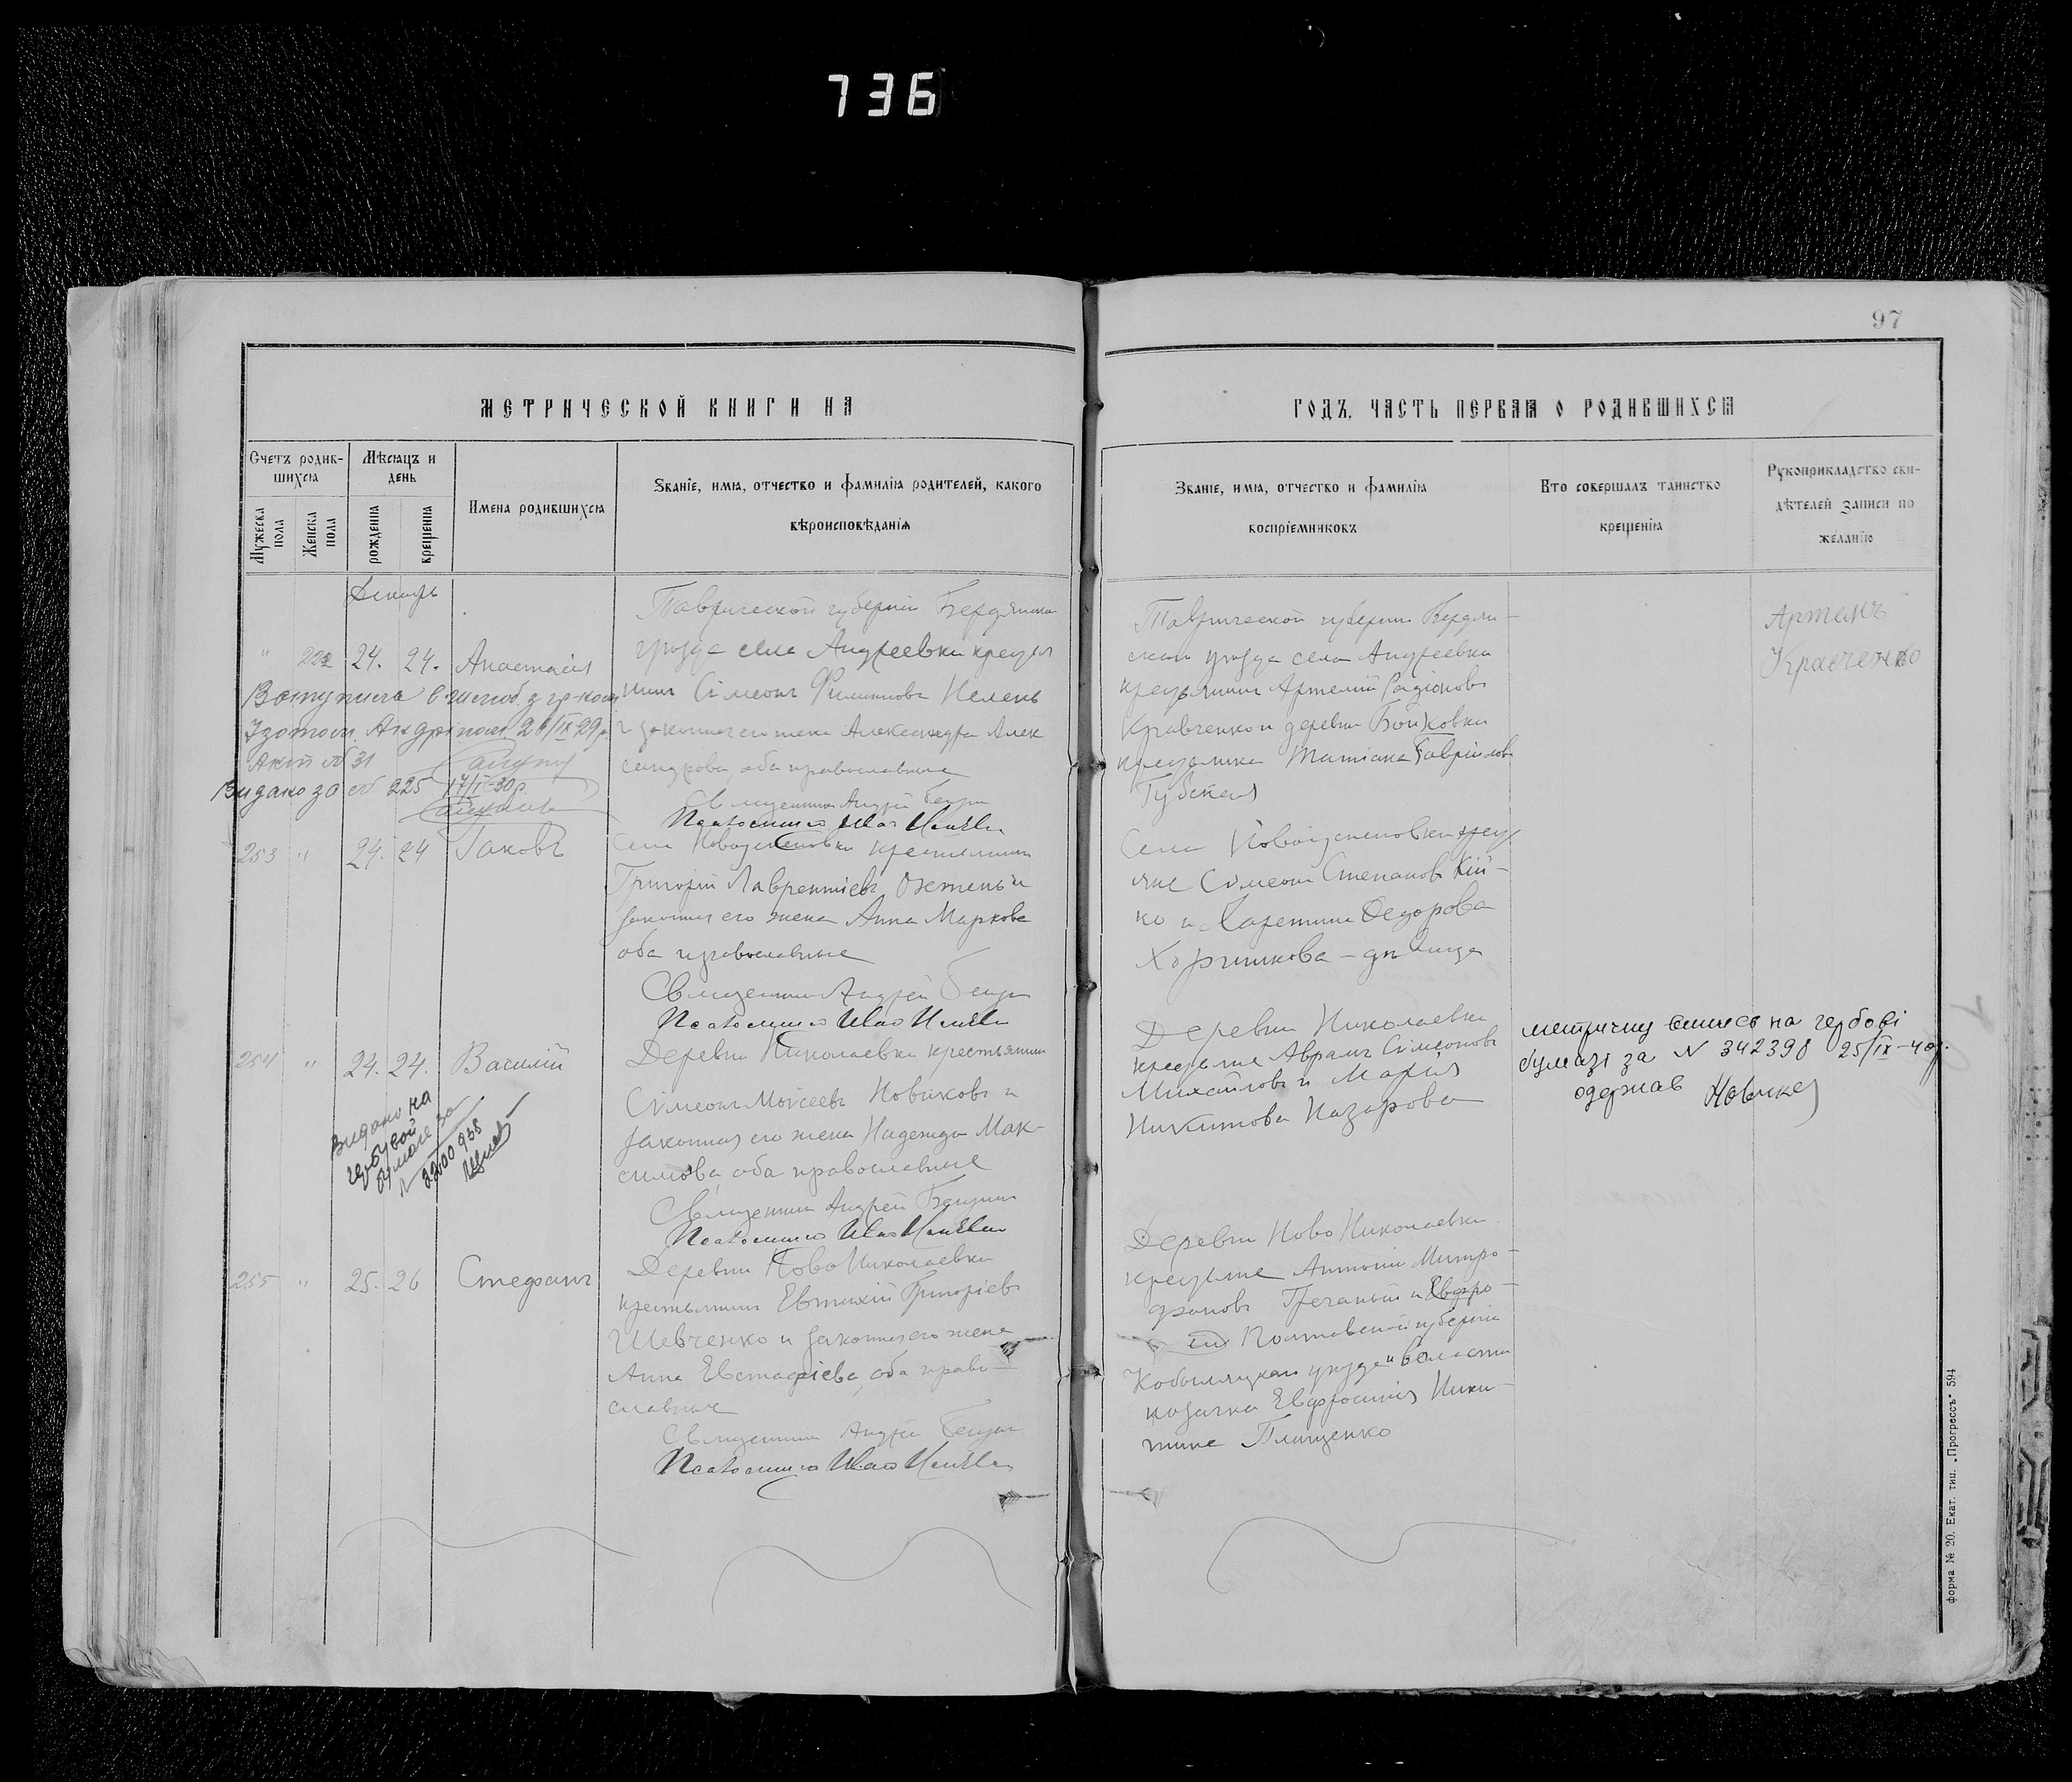 736
97
МЕТРИЧЕСКОЙ КНИГИ НА
ГОДЪ, ЧАСТЬ ПЕРВАЯ О РОДИВШИХСЯ
Счетъ родив-
шихся
Мужеска
пола
Женска
пола
Мѣсяцъ и
день
рожденія
крещенія
Имена родившихся
Званіе, имя, отчество и фамилія родителей, какого
вѣроисповѣданія
Званіе, имя, отчество и фамилія
воспріемниковъ
Кто совершалъ таинство
крещенія
Рукоприкладство сви-
дѣтелей записи по
желанію
Декабрь
" 24. 24. Анастасія
Таврической губерніи Бердянска
уѣзда села Андреевки крестья
нинъ Сѵмеонъ Филиповъ
законная его жена Александра Алек
сандрова, оба православные
Священникъ Андрей
Псаломщикъ Иван
Вступила в шлюб з гр-ном
26/IX 29 р.
Акт № 31
Видано за № 225 17/I-30 р.
Таврической губерніи Бердян-
скаго уѣзда села Андреевки
крестьянинъ Артемій Радіоновъ
Кравченко и деревни Бойковки
крестьянка Татіана Гавріилова
Губская
Артемъ
Кравченко
253 " 24. 24 Іаковъ
Села Новоуспеновки крестьянинъ
Григорій Лаврентіевъ и
законная его жена Анна Маркова
оба православные
Священникъ Андрей
Псаломщикъ Иван
Села Новоуспеновки крест
яне Сѵмеонъ Степановъ Кій-
ко и Харетина Ѳедорова
– дѣвица
254 " 24. 24. Василій
Деревни Николаевки крестьянинъ
Сѵмеонъ Моѵсеевъ Новиковъ и
законная его жена Надежда Мак-
симова, оба православные
Священникъ Андрей
Псаломщикъ Иван
Видано на
гербовой
бумаге за
N 2200938
Деревни Николаевки
крестьяне Аврамъ Сѵмеоновъ
Михайловъ и Марія
Никитова Назарова
метричну випись на гербові
бумазі за N 342398 25/IX-40 р.
одержав Новик
255 " 25. 26 Стефанъ
Деревни Ново Николаевки
крестьянинъ Евтихій Григоріевъ
Шевченко и законная его жена
Анна Евстафіева, оба право-
славные
Священникъ Андрей
Псаломщикъ Иван
Деревни Ново Николаевки
крестьяне Антоній Митро-
фановъ Гречаный и Евфро-
сія Полтавской губерніи
Кобылякскаго уѣзда и волости
козачка Евфросинія Ники-
тина Глущенко
форма № 20. Екат. тип. „Прогрессъ" 594